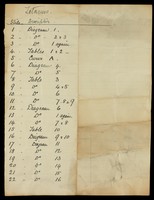 1 Diagram 1.
2 Do 2 & 3
3 Do 1 again
4 Tables 1 & 2
5 Curve A
6 Diagram 4.
7 Do 5
8 Table 3
9 Do 4 & 5
10 Do 6
11 Do 7. 8 & 9
12 Diagram 6
13 Do 1 again
14 Do 7 & 8
15 Table 10
16 Diagram 9 & 10
17 Diagram 11
18 Do 12
19 Do 13
20 Do 14
21 Do 15
22 Do 16